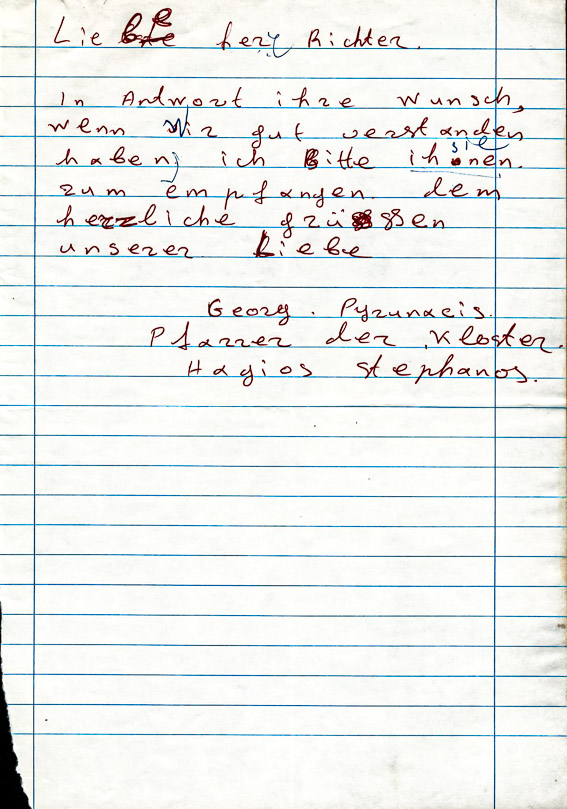 Liebe herr Richter.
In Antwort ihre wunsch,
wenn Wir gut verstanden
haben, ich Bitte ihnen sie
zum empfangen dem
herzliche grüssen
unserer Liebe
Georg. Pyrunacis.
Pfarrer der Kloster.
Hagios stephanos.